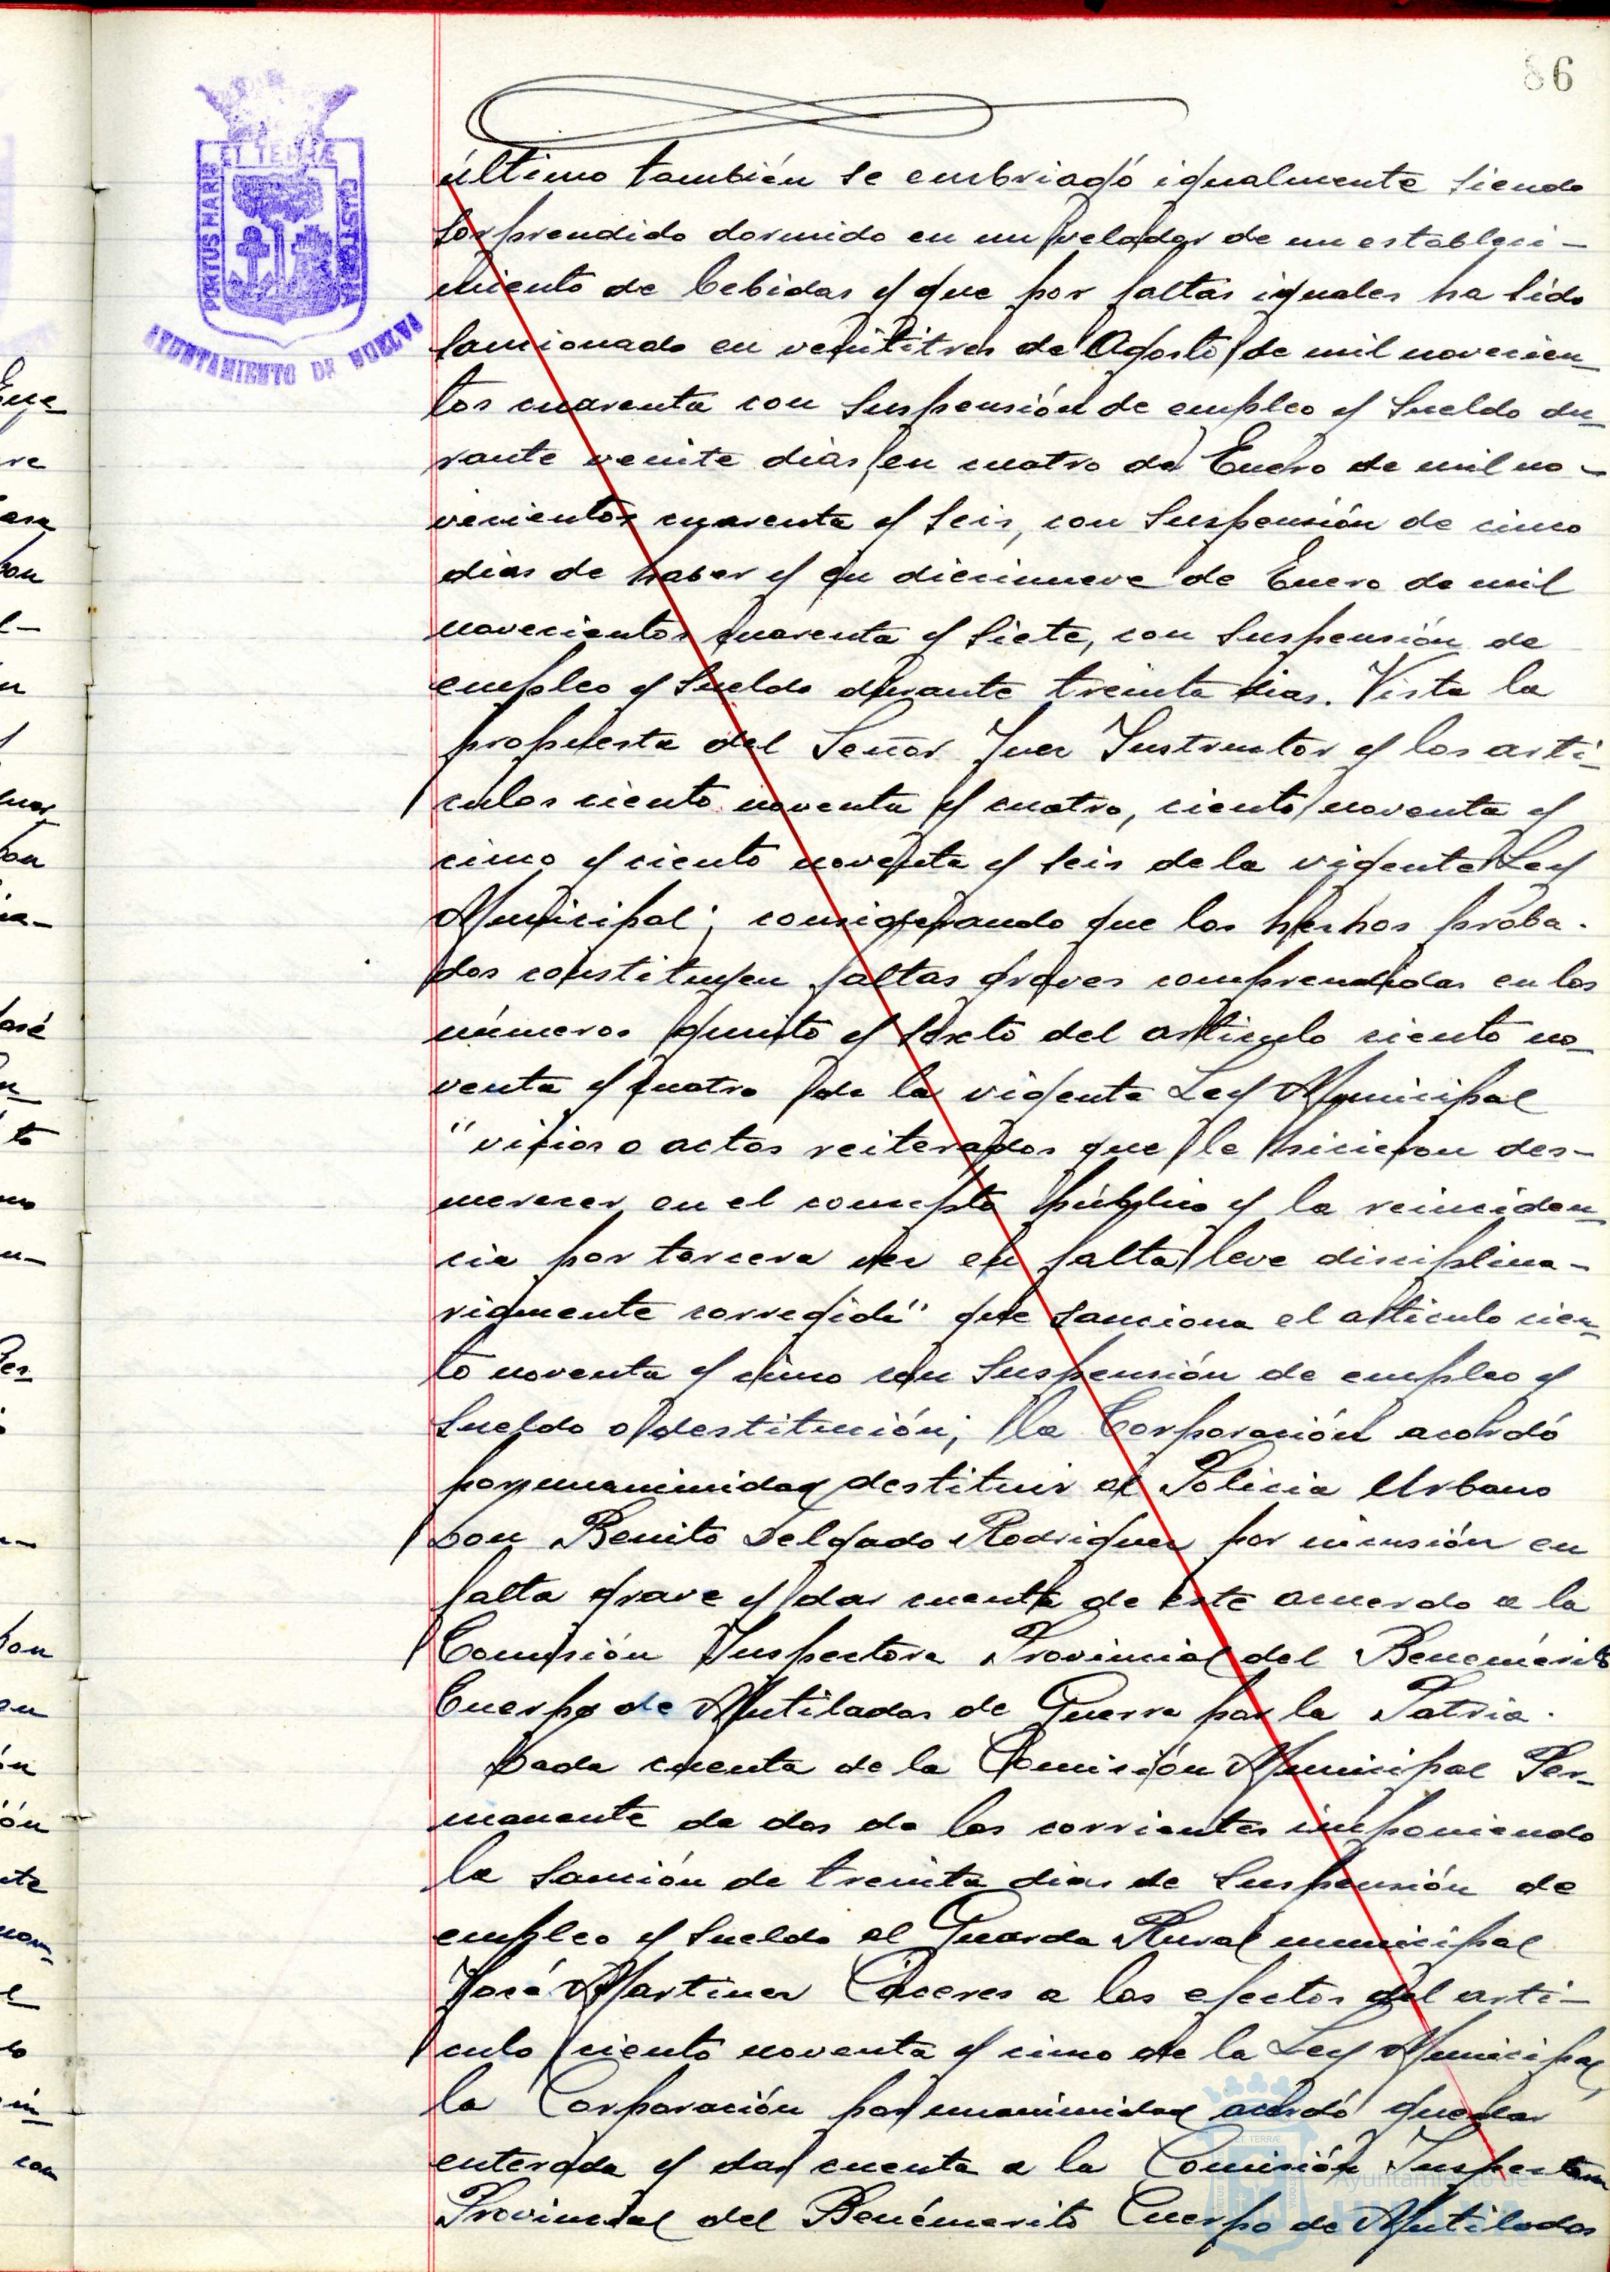 86
ET TERRÆ
PORTUS MARIS
CUSTODIA
AYUNTAMIENTO DE HUELVA
último también se embriagó igualmente siendo
sorprendido dormido en un velador de un estableci-
miento de bebidas y que por faltas iguales ha sido
sancionado en veintitres de Agosto de mil novecien-
tos cuarenta con suspensión de empleo y sueldo du-
rante veinte dias, en cuatro de Enero de mil no-
vecientos cuarenta y seis, con suspensión de cinco
dias de haber y en diecinueve de Enero de mil
novecientos cuarenta y siete, con suspensión de
empleo y sueldo durante treinta dias. Vista la
propuesta del Señor Juez Instructor y los arti-
culos ciento noventa y cuatro, ciento noventa y
cinco y ciento noventa y seis de la vigente Ley
Municipal; considerando que los hechos proba-
dos constituyen faltas graves comprendidas en los
números quinto y sexto del articulo ciento no-
venta y cuatro de la vigente Ley Municipal
"vicios o actos reiterados que le hicieron des-
merecer en el concepto público y la reinciden-
cia por tercera vez en falta leve disciplina-
riamente corregida" que sanciona el articulo cien-
to noventa y cinco con suspensión de empleo y
sueldo o destitución; la Corporación acordó
por unanimidad destituir al Policia Urbano
Don Benito Delgado Rodriguez por incusión en
falta grave y dar cuenta de este acuerdo a la
Comisión Inspectora Provincial del Benemérito
Cuerpo de Mutilados de Guerra por la Patria.
Dada cuenta de la Comisión Municipal Per-
manente de dos de los corrientes imponiendo
la sanción de treinta dias de suspensión de
empleo y sueldo al Guarda Rural municipal
José Martinez Cáceres a los efectos del arti-
culo ciento noventa y cinco de la Ley Municipal,
la Corporación por unanimidad acordó quedar
enterada y dar cuenta a la Comisión Inspectora
Provincial del Benémerito Cuerpo de Mutilados
Ayuntamiento de
HUELVA